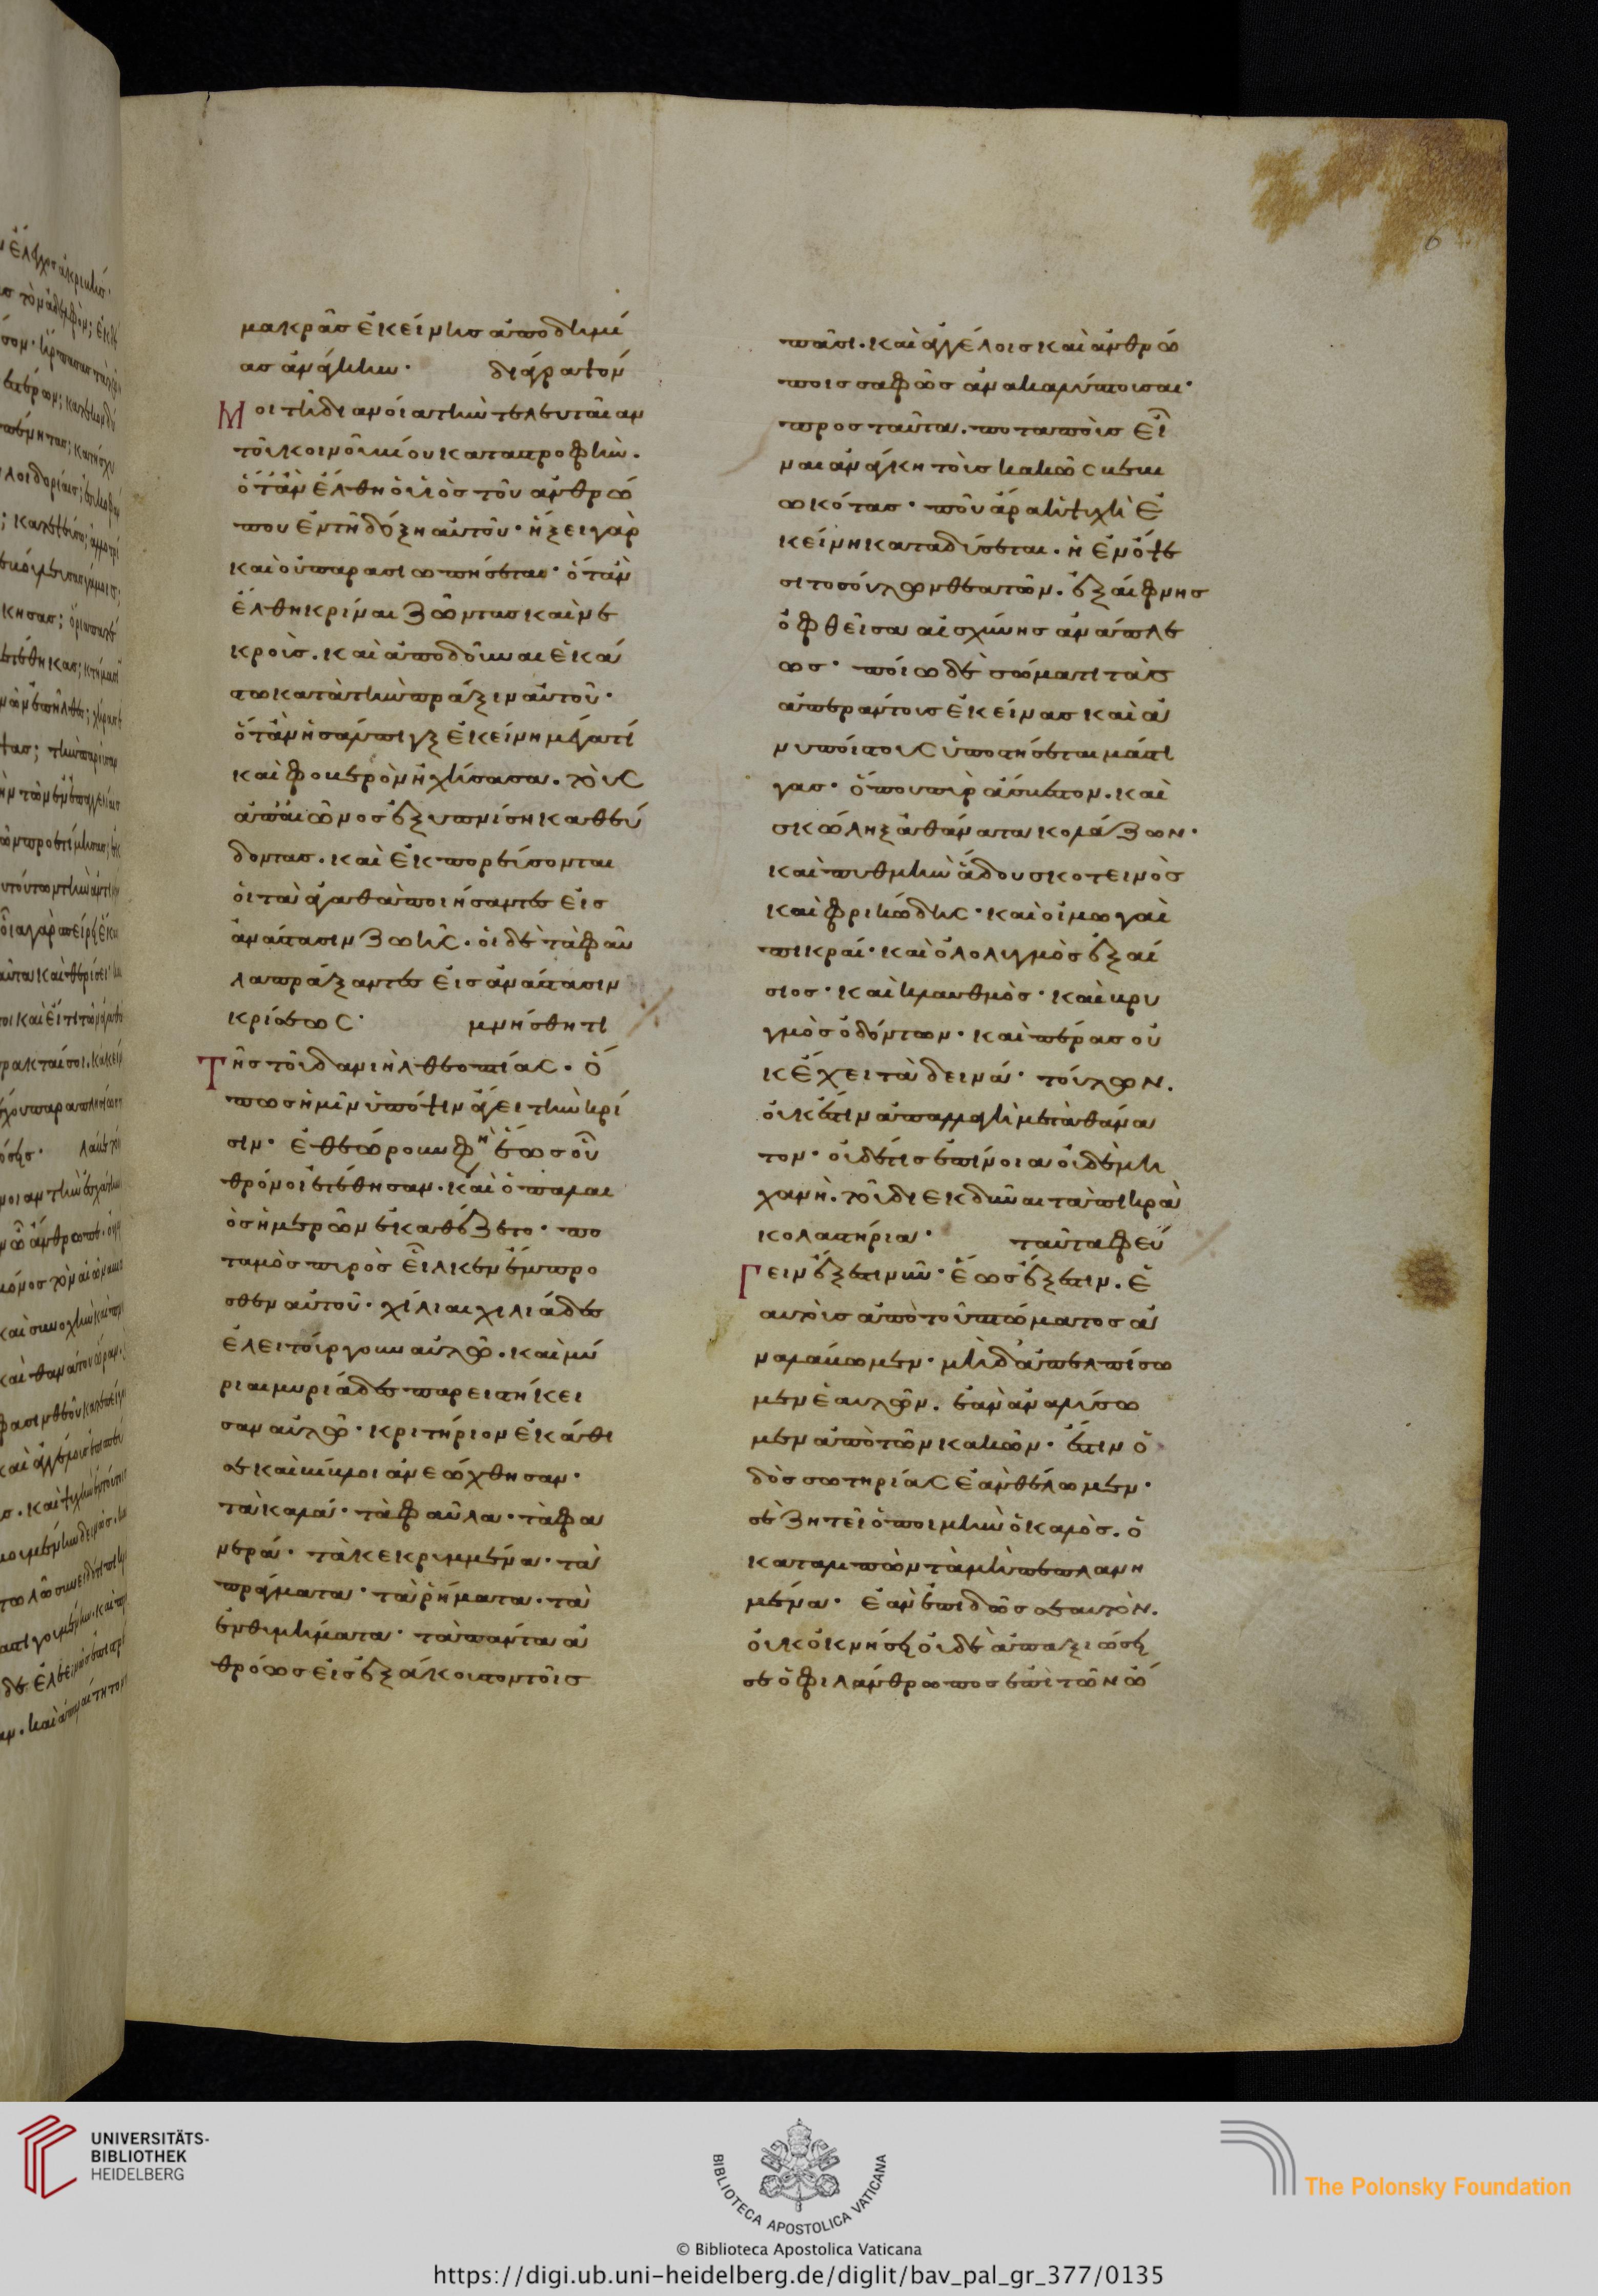 μακρᾶσ ἐκείνησ ἀποδημί
ασ ἀνάγκην· διάγραψόν
Μοι τῆ διανοία τὴν τελευταίαν
τοῦ κοινοῦ βίου καταστροφήν.
ὅταν ἔλθη ὁ υἱὸσ τοῦ ἀνθρώ
που ἐν τῆ δόξη αὐτοῦ· ἥξει γὰρ
καὶ οὐ παρασιωπήσεται· ὅταν
ἔλθη κρίναι ζῶντασ καὶ νε
κρούσ. καὶ ἀποδοῦναι ἑκά
στω κατὰ τὴν πράξιν αὐτοῦ·
ὅταν ἡ σάλπιγξ ἐκείνη μέγα τί
καὶ φοβερὸν ἠχήσασα. τοὺσ
ἀπαιῶνοσ ἐξυπνίση καθεύ
δοντασ. καὶ ἐκπορεύσονται
οἱ τὰ ἀγαθὰ ποιήσαντεσ εἰσ
ἀνάστασιν ζωῆσ. οἱ δὲ τὰ φαῦ
λα πράξαντεσ εἰσ ἀνάστασιν
κρίσεωσ· μνήσθητι
Τῆσ τοῦ δανιὴλ θεοπτίασ. ὅ
πωσ ἡμῖν ὑπόψιν ἄγει τὴν κρί
σιν· ἐθεώρουν φη ἕωσ οὗ
θρόνοι ἐτέθησαν. καὶ ὁ παλαι
ὸσ ἡμερῶν ἐκαθέζετο· πο
ταμὸσ πυρὸσ εἷλκεν ἔμπρο
σθεν αὐτοῦ· χίλιαι χιλιάδεσ
ἐλειτούργουν αὐτῶ. καὶ μύ
ριαι μυριάδεσ παρειστήκει
σαν αὐτῶ· κριτήριον ἐκάθι
σε καὶ βίβλοι ἀνεώχθησαν·
τὰ καλά· τὰ φαῦλα· τὰ φα
νερά· τὰ κεκρυμμένα· τὰ
πράγματα· τὰ ῥήματα. τὰ
ἐνθυμήματα· τὰ πάντα ἀ
θρόωσ εἰσ ἐξάκουστον τοῖσ
πᾶσι. καὶ ἀγγέλοισ καὶ ἀνθρώ
ποισ σαφῶσ ἀνακαλύπτουσαι·
προσ ταῦτα. ποταποὺσ εἶ
ναι ἀνάγκη τοὺσ κακῶσ βεβι
ωκότασ· ποῦ ἄρα ἡ ψυχὴ ἐ
κείνη καταδύσεται. ἡ ἐν ὄψε
σι τοσούτων θεατῶν. ἐξαίφνησ
ὀφθεῖσα αἰσχύνησ ἀνάπλε
ωσ· ποίω δὲ σώματι τὰσ
ἀπεράντουσ ἐκείνασ καὶ ἀ
νυποίστουσ ὑποστήσεται μάστι
γασ· ὅπου πῦρ ἄσβεστον. καὶ
σκώληξ ἀθάνατα κολάζων·
καὶ πυθμὴν ἅδου σκοτεινὸσ
καὶ φρικώδησ· καὶ οἰμωγαὶ
πικραί· καὶ ὀλολυγμὸσ ἐξαί
σιοσ· καὶ κλαυθμὸσ· καὶ βρυ
γμὸσ ὀδόντων· καὶ πέρασ οὐ
κ ἔχει τὰ δεινά· τούτων.
οὐκ ἔστιν ἀπαλλαγὴ μετὰ θάνα
τον· οὐδέ τισ ἐπίνοια οὐδὲ μη
χανὴ. τοῦ διεκδῦναι τὰ πικρὰ
κολαστήρια· ταῦτα φεύ
Γειν ἔξεστι νῦν· ἕωσ ἔξεστιν. ἑ
αυτοὺσ ἀπὸ τοῦ πτώματοσ ἀ
ναλάβωμεν· μὴ δ' ἀπελπίσω
μεν ἑαυτῶν. ἐὰν ἀναλύσω
μεν ἀπὸ τῶν κακῶν· ἔστιν ὁ
δὸσ σωτηρίασ ἐὰν θέλωμεν·
σὲ ζητεῖ ὁ ποιμὴν ὁ καλὸσ. ὁ
καταλιπὼν τὰ μὴ πεπλανη
μένα· ἐὰν ἐπιδῶσ σεαυτὸν.
οὐκ ὀκνήσει οὐδὲ ἀπαξιώσει
σε ὁ φιλάνθρωποσ ἐπὶ τῶν ὤ
6
UNIVERSITÄTS-
BIBLIOTHEK
HEIDELBERG
BIBLIOTECA APOSTOLICA VATICANA
The Polonsky Foundation
© Biblioteca Apostolica Vaticana
https://digi.ub.uni-heidelberg.de/diglit/bav_pal_gr_377/0135